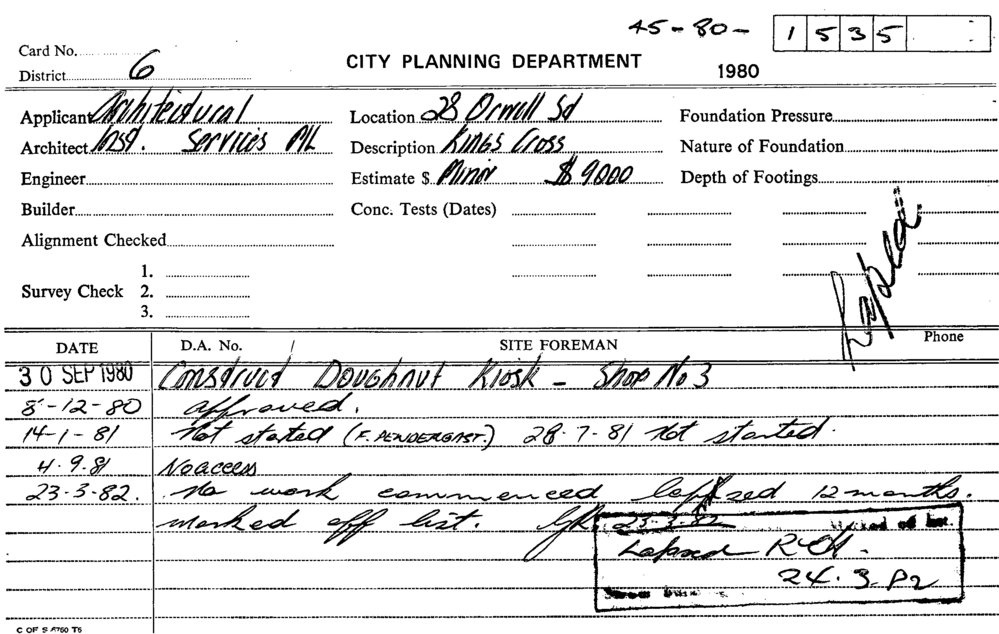 45-80- 1 5 3 5
Card No.
District 6
CITY PLANNING DEPARTMENT
1980
Applicant Architectural
Location 28 Orwell Sd
Foundation Pressure
Architect Cnst. Services P/L
Description Kings Cross
Nature of Foundation
Engineer
Estimate $ Minor $9000
Depth of Footings
Builder
Conc. Tests (Dates)
Alignment Checked
Survey Check 1.
2.
3.
Phone
DATE D.A. No. SITE FOREMAN
30 SEP 1980 Construct Doughnut Kiosk - Shop No 3
8-12-80 approved.
14-1-81 Not started (F. PENDERGAST.) 28.7.81 Not started.
4.9.81 No access
23-3-82. No work commenced lapsed 12 months.
marked off list. 23.3.82
Lapsed
24.3.82
C OF S 6760 T6